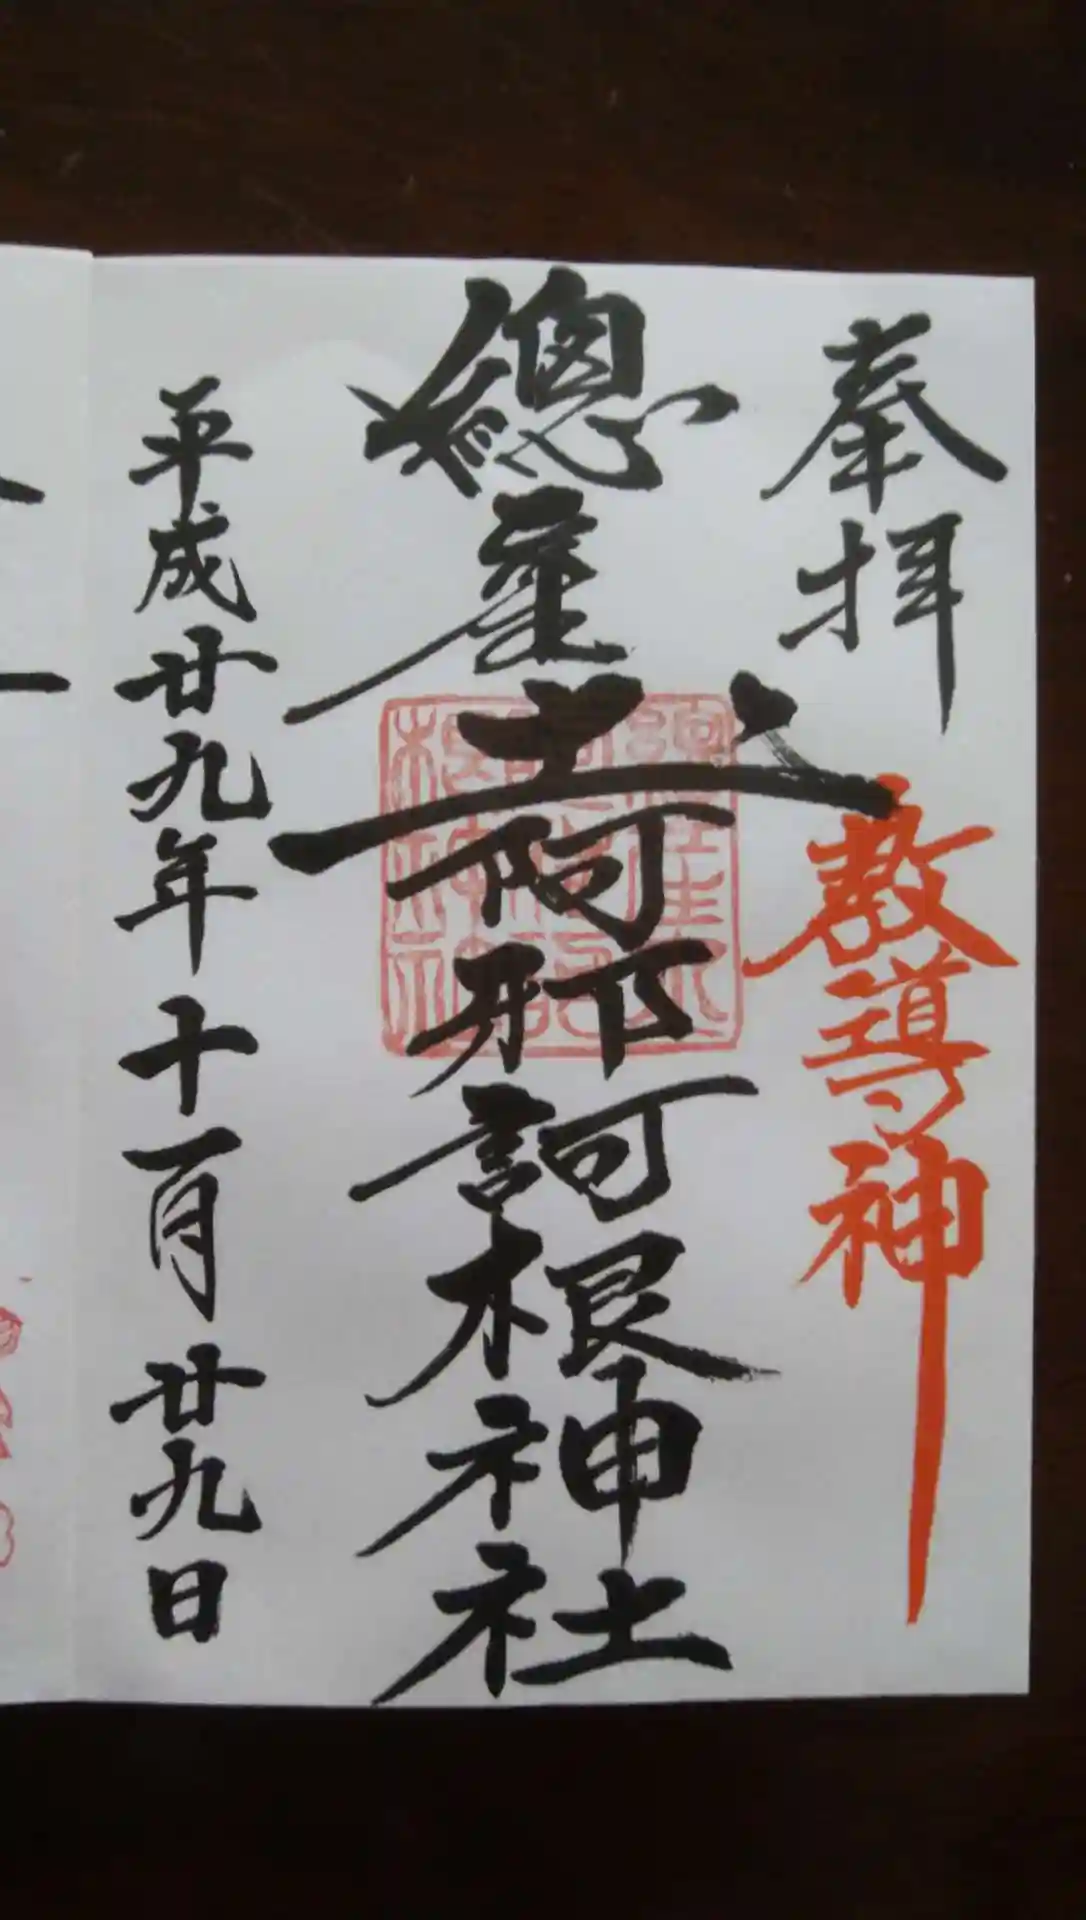 奉拝
教導神
總産土
阿邪訶根神社
平成廿九年十一月廿九日